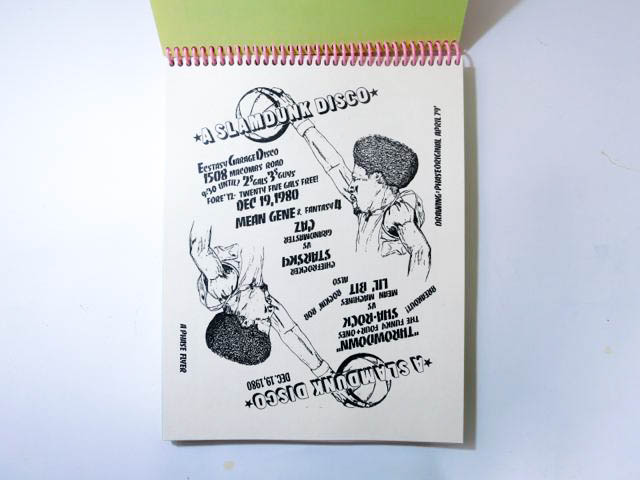 ★A SLAMDUNK DISCO★
ECSTASY GARAGE DISCO
1508 MACOMBS ROAD
9:30 UNTIL? 2$ GALS 3$ GUYS
FORE '12- TWENTY FIVE GALS FREE!
DEC 19,1980
MEAN GENE & FANTASY 4
DRAWING: PHASE ORIGINAL APRIL 79'
A PHASE FLYER
★A SLAMDUNK DISCO★
DEC. 19, 1980
"THROWDOWN"
THE FUNKY FOUR + ONES
SHA-ROCK
VS
MEAN MACHINES
LIL' BIT
BREAKOUT!
ALSO ROCKIN' ROB
CHIEFROCKER
STARSKI
VS
GRANDMASTER
CAZ